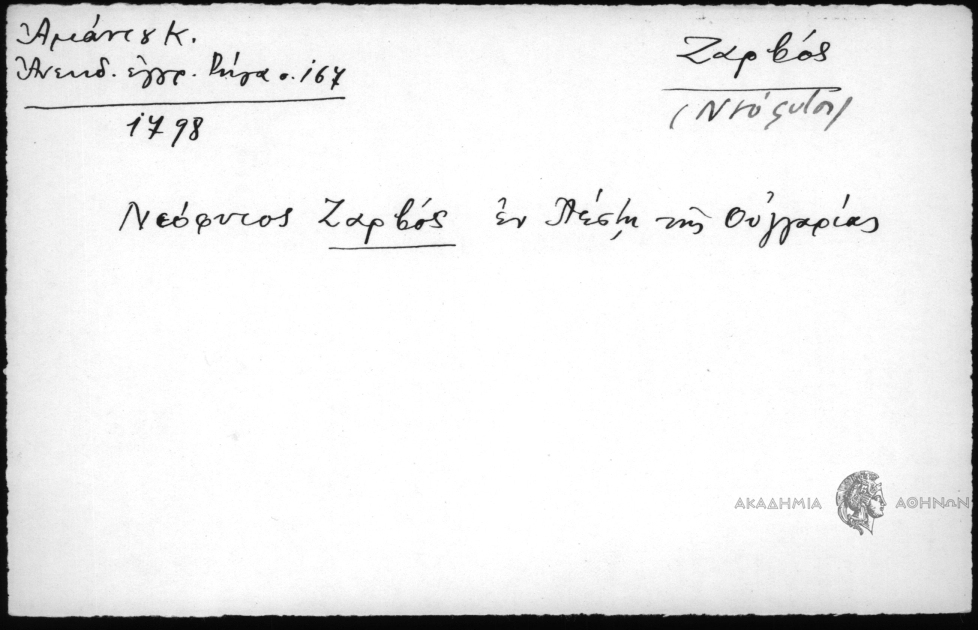 Ἀμάντου Κ.
Ἀνεκδ. ἔγγρ. Ρήγα σ. 167
1798
Ζαρβός
(Νεόφυτος)
Νεόφυτος Ζαρβός ἐν Πέστῃ τῆς Οὑγγαρίας
ΑΚΑΔΗΜΙΑ ΑΘΗΝΩΝ